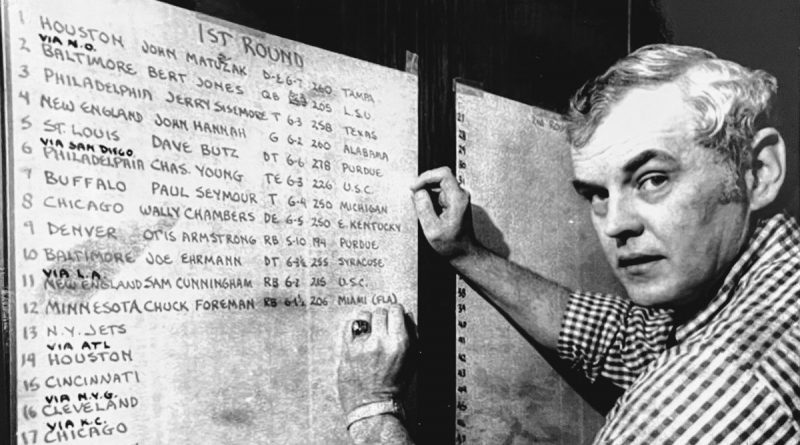 1ST ROUND
1 HOUSTON JOHN MATUZAK D-E 6-7 260 TAMPA
VIA N.O.
2 BALTIMORE BERT JONES QB 205 L.S.U.
3 PHILADELPHIA JERRY SISEMORE T 6-3 258 TEXAS
4 NEW ENGLAND JOHN HANNAH G 6-2 260 ALABAMA
5 ST. LOUIS DAVE BUTZ DT 6-6 278 PURDUE
VIA SAN DIEGO
6 PHILADELPHIA CHAS. YOUNG TE 6-3 226 U.S.C.
7 BUFFALO PAUL SEYMOUR T 6-4 250 MICHIGAN
8 CHICAGO WALLY CHAMBERS DE 6-5 250 E. KENTUCKY
9 DENVER OTIS ARMSTRONG RB 5-10 194 PURDUE
10 BALTIMORE JOE EHRMANN DT 255 SYRACUSE
VIA L.A.
11 NEW ENGLAND SAM CUNNINGHAM RB 6-2 215 U.S.C.
12 MINNESOTA CHUCK FOREMAN RB 6-1½ 206 MIAMI (FLA)
13 N.Y. JETS
VIA ATL
14 HOUSTON
15 CINCINNATI
VIA N.Y.G.
16 CLEVELAND
VIA K.C.
17 CHICAGO